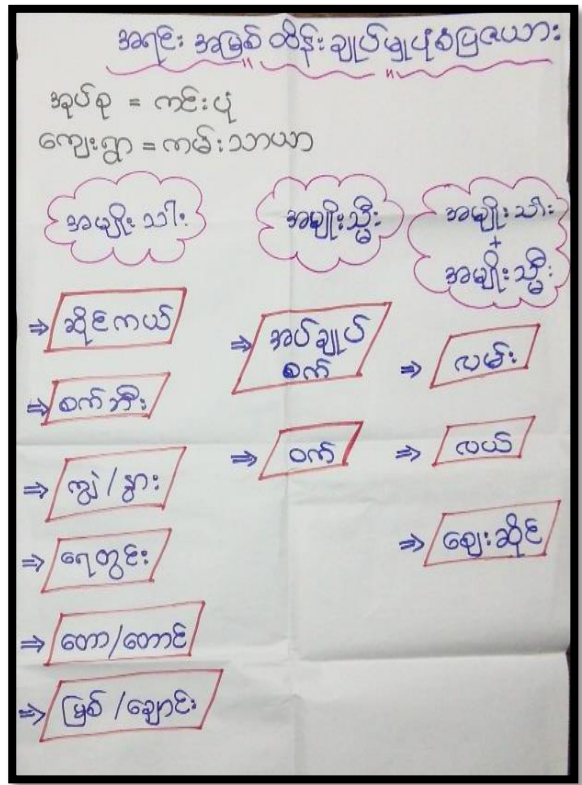 အရင်း အမြစ် ထိန်းချုပ်မှုပုံစံပြဇယား
အုပ်စု = ကင်းပုံ
ကျေးရွာ = ကမ်းသာယာ
အမျိုးသား
ဆိုင်ကယ်
စက်ဘီး
ကျွဲ/နွား
ရေတွင်း
တော/တောင်
မြစ်/ချောင်း
အမျိုးသ္မီး
အပ်ချုပ်
စက်
ဝက်
အမျိုးသား
+
အမျိုးသ္မီး
လမ်း
လယ်
ဈေးဆိုင်